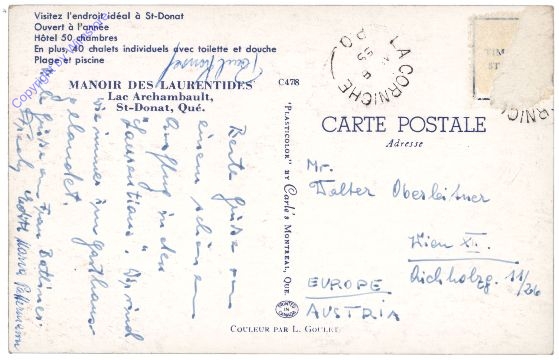 Visitez l'endroit idéal à St-Donat
Ouvert à l'année
Hôtel 50 chambres
En plus, 40 chalets individuels avec toilette et douche
Plage et piscine
MANOIR DES LAURENTIDES
Lac Archambault,
St-Donat, Qué.
C478
LA CORNICHE
CARTE POSTALE
Adresse
"PLASTICOLOR" BY Carle's MONTREAL, QUE.
Beste Grüße von
einem schönen
Ausflug in den
"Laurentians". Wir sind
wie immer im Gasthaus
gelandet.
Mr.
Walter Oberleitner
Wien XII.
Aichholzg. 11/26
EUROPE
AUSTRIA
COULEUR PAR L. GOULET